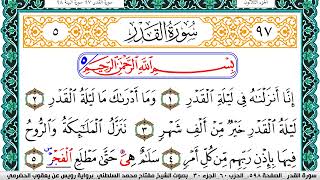 الجزء الثلاثون
سورة القدر ٩٧ - سورة البينة ٩٨
٥ سُورَةُ القَدْرِ ٩٧
بِسْمِ اللَّهِ الرَّحْمَٰنِ الرَّحِيمِ
إِنَّا أَنزَلْنَاهُ فِي لَيْلَةِ الْقَدْرِ ١ وَمَا أَدْرَاكَ مَا لَيْلَةُ الْقَدْرِ ٢
لَيْلَةُ الْقَدْرِ خَيْرٌ مِّنْ أَلْفِ شَهْرٍ ٣ تَنَزَّلُ الْمَلَائِكَةُ وَالرُّوحُ
فِيهَا بِإِذْنِ رَبِّهِم مِّن كُلِّ أَمْرٍ ٤ سَلَامٌ هِيَ حَتَّى مَطْلَعِ الْفَجْرِ ٥
سورة القدر الصفحة ٥٩٨ الحزب ٦٠ الجزء ٣٠ بصوت الشيخ مفتاح محمد السلطني برواية رويس عن يعقوب الحضرمي